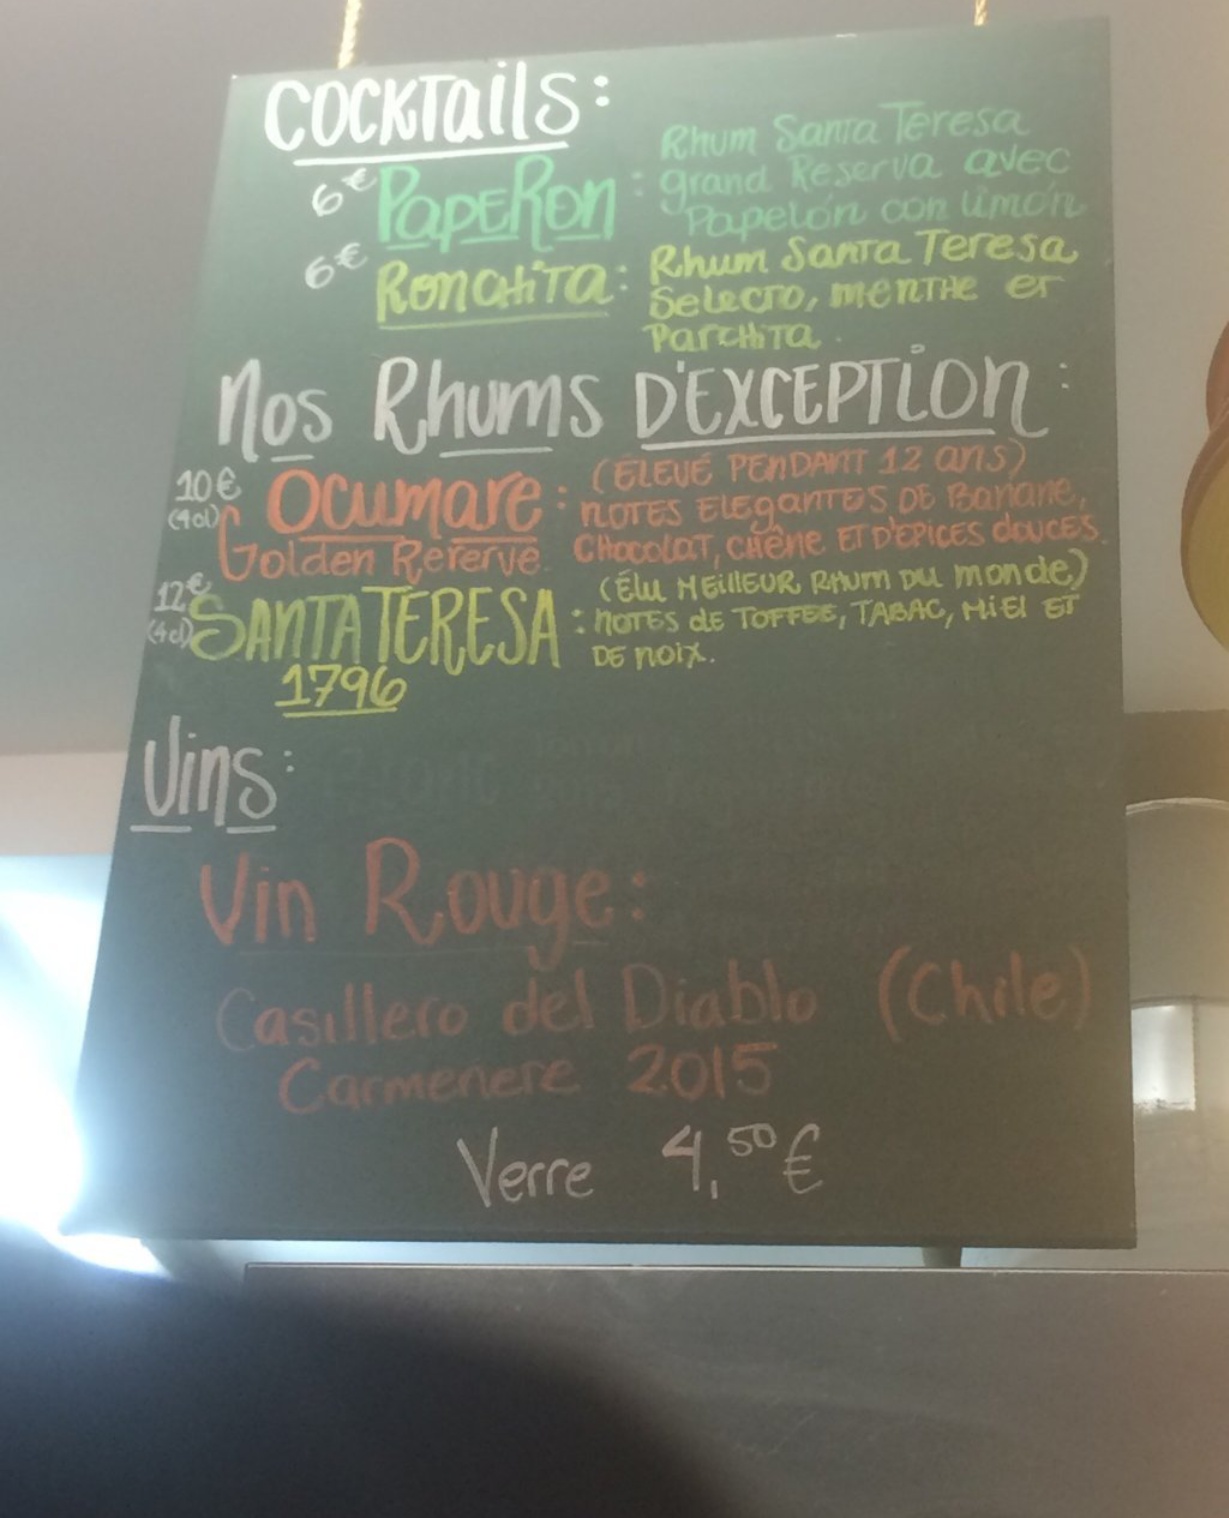 COCKTails:
6€ PapeRon : Rhum Santa Teresa
grand Reserva avec
Papelón con limón
6€ RoncHiTa : Rhum Santa Teresa
Selecto, menTHe et
ParcHiTa.
Nos Rhums D'EXCEPTion :
10€ (4cl) Ocumare : (ÉLEVÉ PENDANT 12 ans)
Golden Rererve. NOTES ELEganTES DE Banane,
CHocolaT, CHêne ET D'EPICES douces.
12€ (4cl) SANTA TERESA : (Élu MEiLLEUR RHum DU monde)
NOTES dE TOFFEE, TABAC, MiEl ET
1796 DE noix.
Vins:
Vin Rouge:
Casillero del Diablo (Chile)
Carmenere 2015
Verre 4,50€